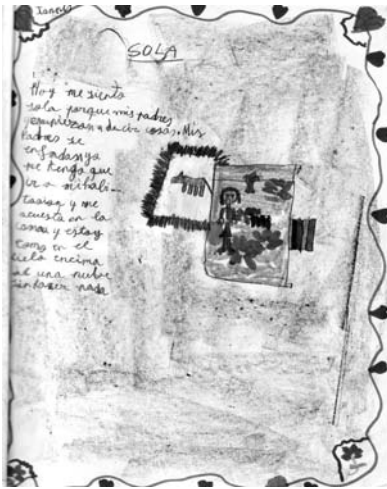 SOLA
Hoy me siento
sola porque mis padres
empiezan a decir cosas. Mis
Padres se
enfadan yo
me tengo que
ir a mi habi-
tacion y me
acuesto en la
cama y estoy
como en el
cielo encima
de una nube
sin hacer nada